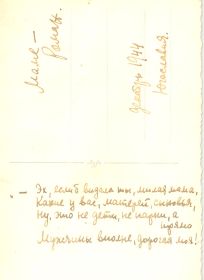 Маме –
Роман.
декабрь 1944
Югославия.
– Эх, если б видела ты, милая мама,
Какие у вас, матерей, сыновья,
Ну, это не дети, не парни, а
прямо
Мужчины вполне, дорогая моя!